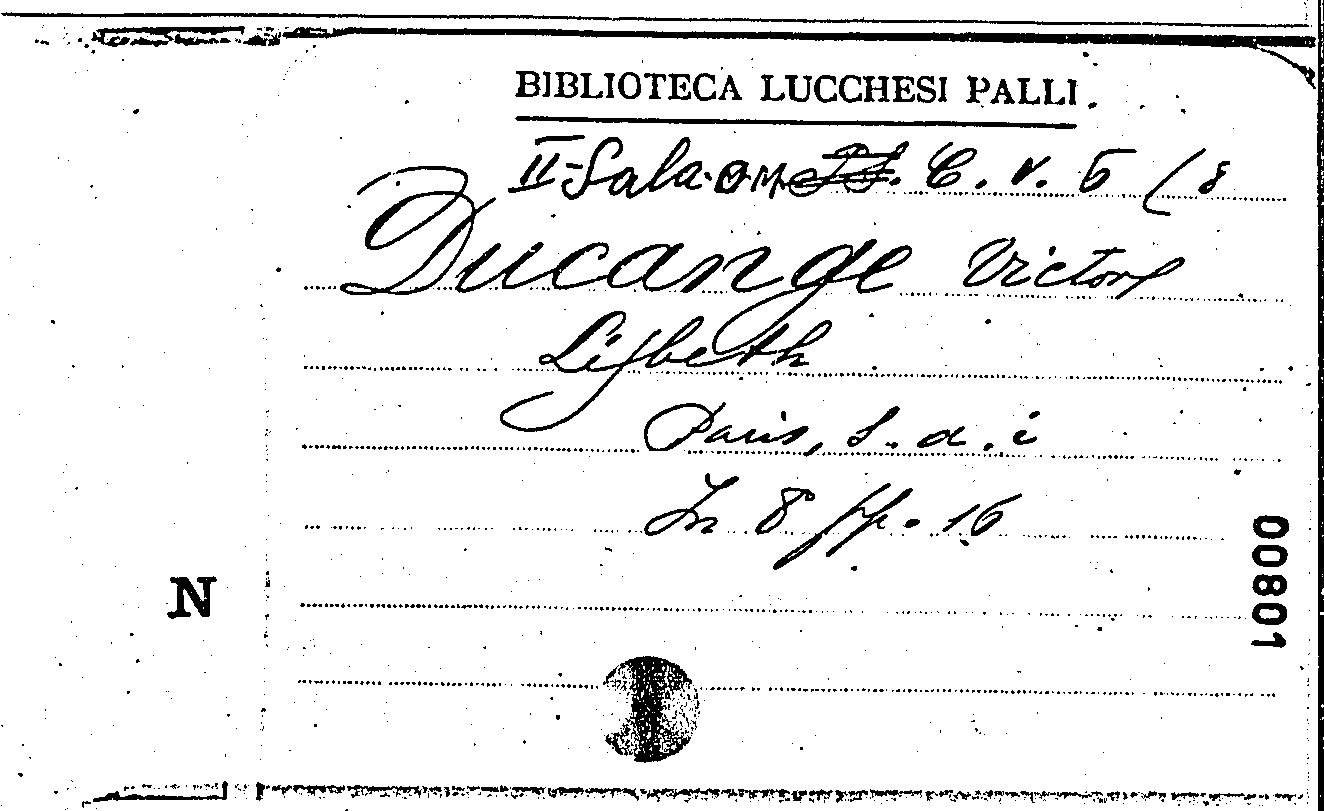 BIBLIOTECA LUCCHESI PALLI.
II-Sala. C. V. 5 (8
Ducange Victor
Lisbeth
Paris, S. d. i
In 8 pp. 16
N
00801